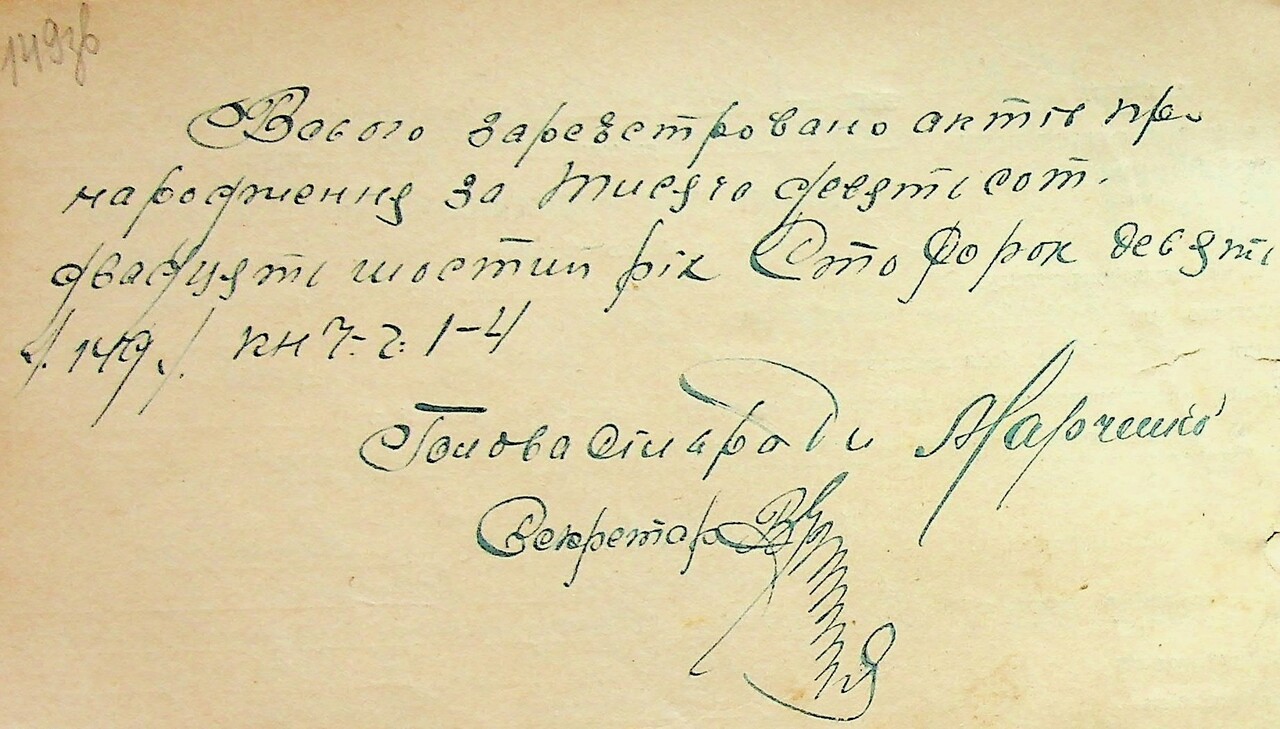 149зв
Всього зарегстровано актів про
народження за тисячо девятьсот
двадцять шостий рік Сто сорок девять
/. 149 ./ кн ч. г. 1-4
Голова сільради Марченко
Секретар